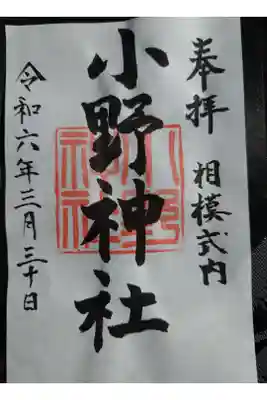 奉拝 相模式内
小野神社
令和六年三月三十日
小野神社